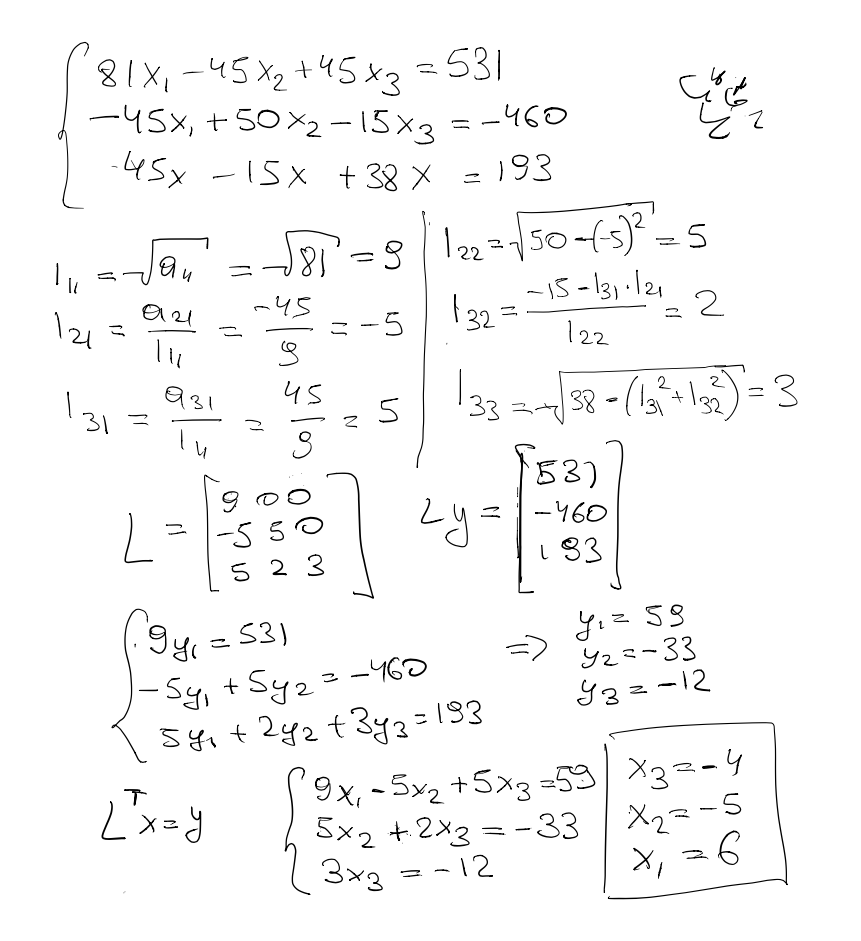 81x₁ - 45x₂ + 45x₃ = 531
-45x₁ + 50x₂ - 15x₃ = -460
-45x - 15x + 38x = 193
l₁₁ = √a₁₁ = √81 = 9
l₂₁ = a₂₁/l₁₁ = -45/9 = -5
l₃₁ = a₃₁/l₁₁ = 45/9 = 5
l₂₂ = √50-(-5)² = 5
l₃₂ = -15-l₃₁·l₂₁/l₂₂ = 2
l₃₃ = √38-(l₃₁²+l₃₂²) = 3
L = [9 0 0
-5 5 0
5 2 3]
Ly = [531
-460
193]
9y₁ = 531
-5y₁ + 5y₂ = -460
5y₁ + 2y₂ + 3y₃ = 193
=> y₁ = 59
y₂ = -33
y₃ = -12
Lᵀx = y
9x₁ - 5x₂ + 5x₃ = 59
5x₂ + 2x₃ = -33
3x₃ = -12
x₃ = -4
x₂ = -5
x₁ = 6